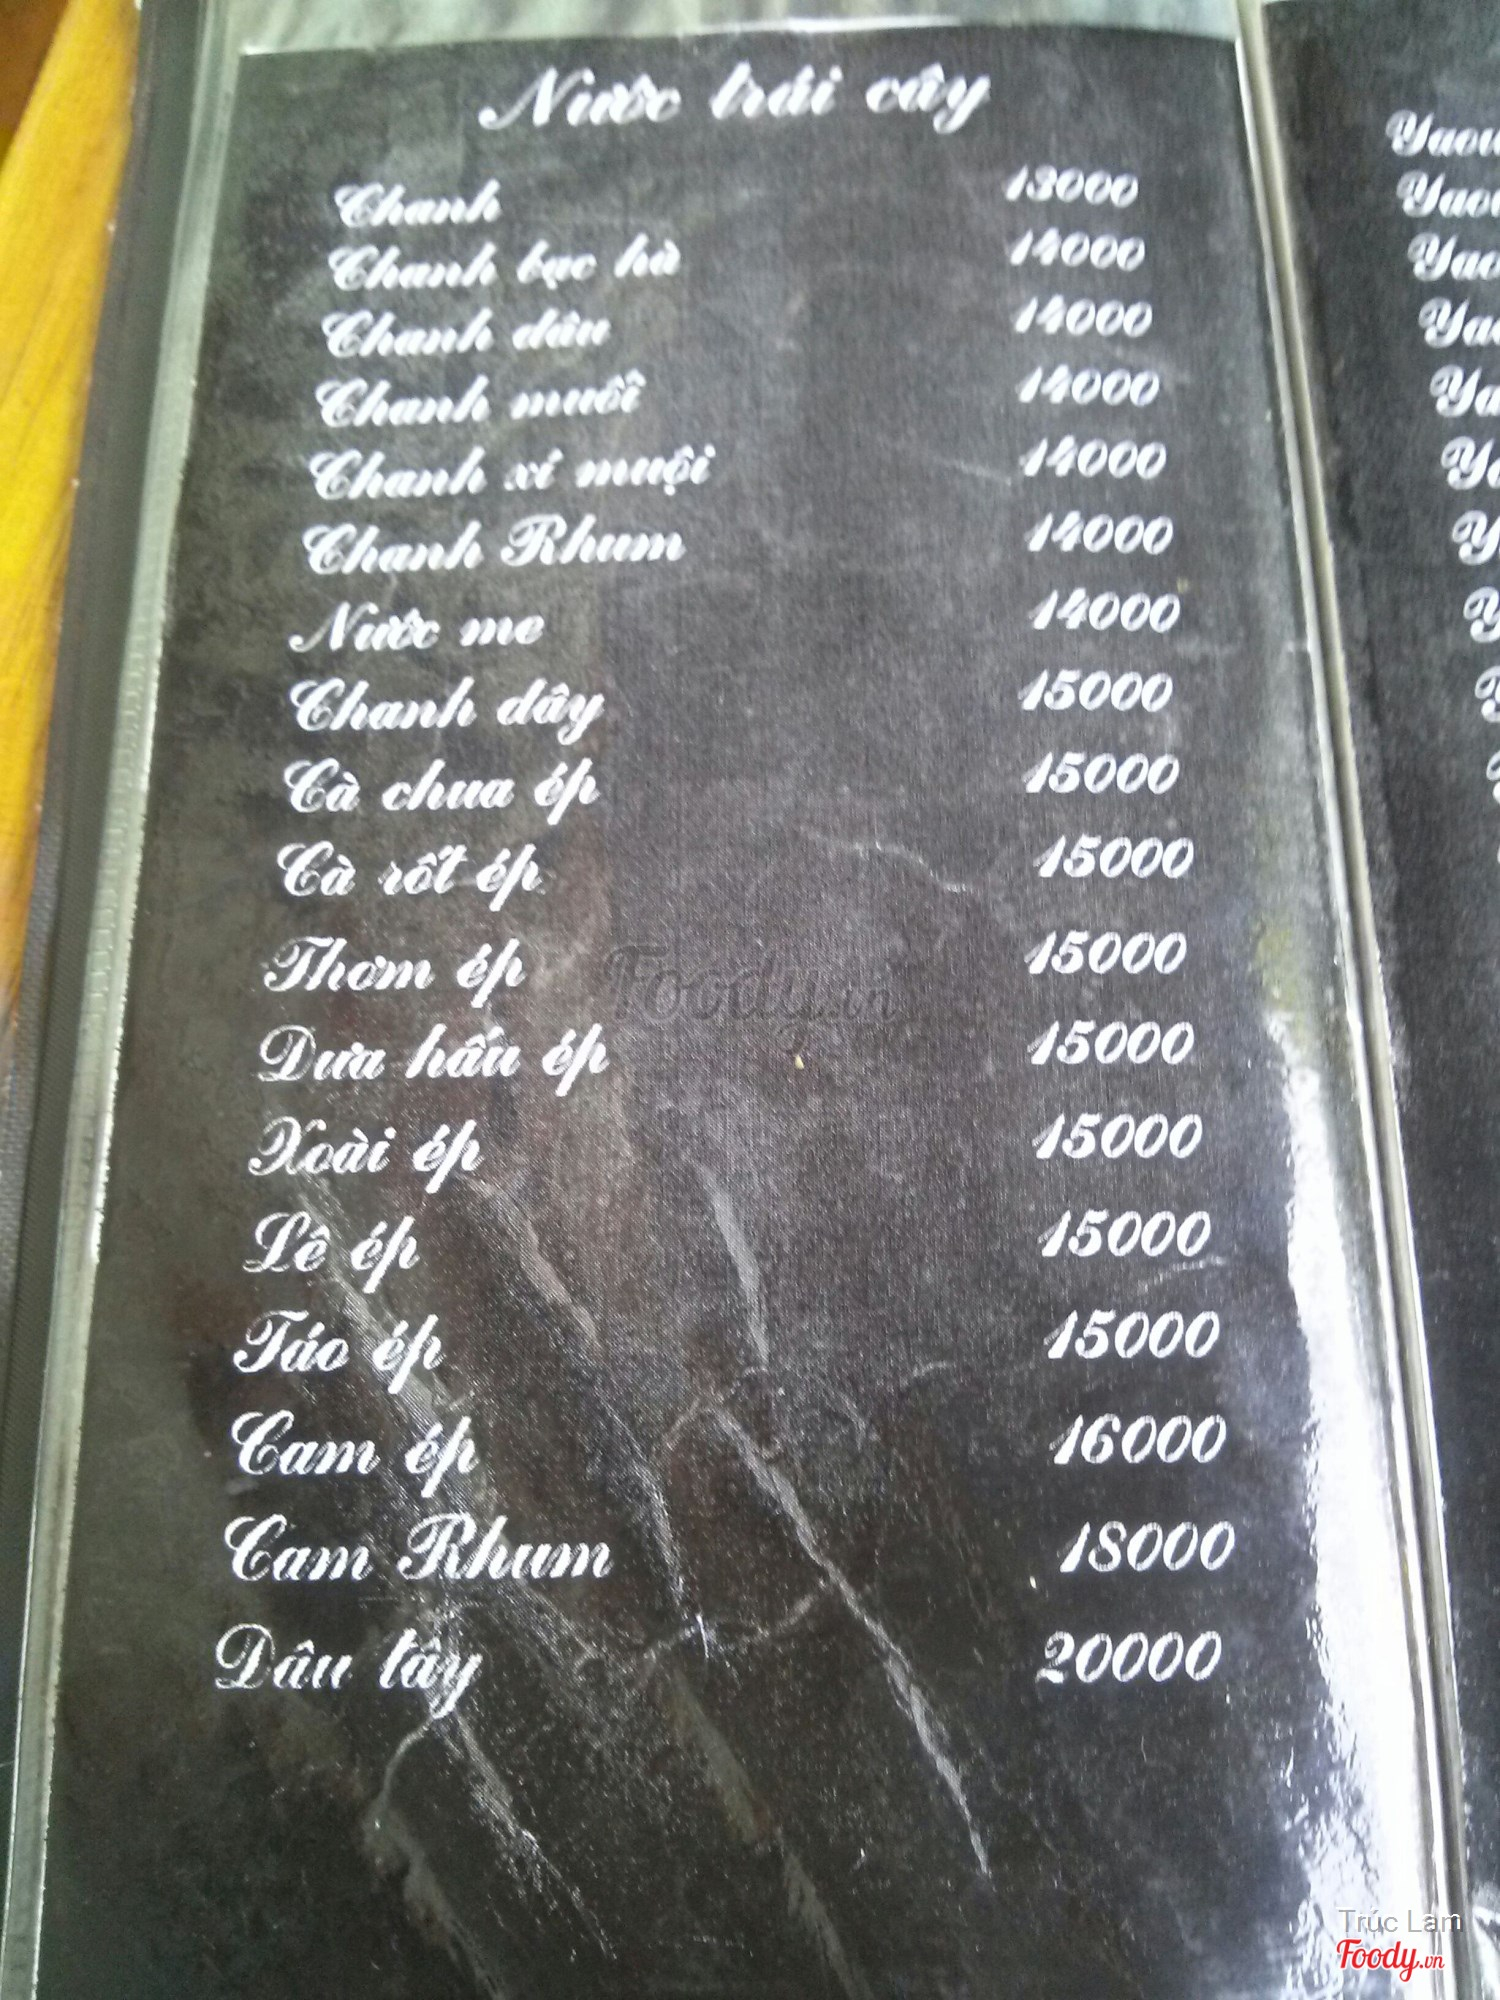 Nước trái cây
Chanh 13000
Chanh bạc hà 14000
Chanh dâu 14000
Chanh muối 14000
Chanh xí muội 14000
Chanh Rhum 14000
Nước me 14000
Chanh dây 15000
Cà chua ép 15000
Cà rốt ép 15000
Thơm ép 15000
Dưa hấu ép 15000
Xoài ép 15000
Lê ép 15000
Táo ép 15000
Cam ép 16000
Cam Rhum 18000
Dâu tây 20000
Foody.vn
Trúc Lam
Foody.vn